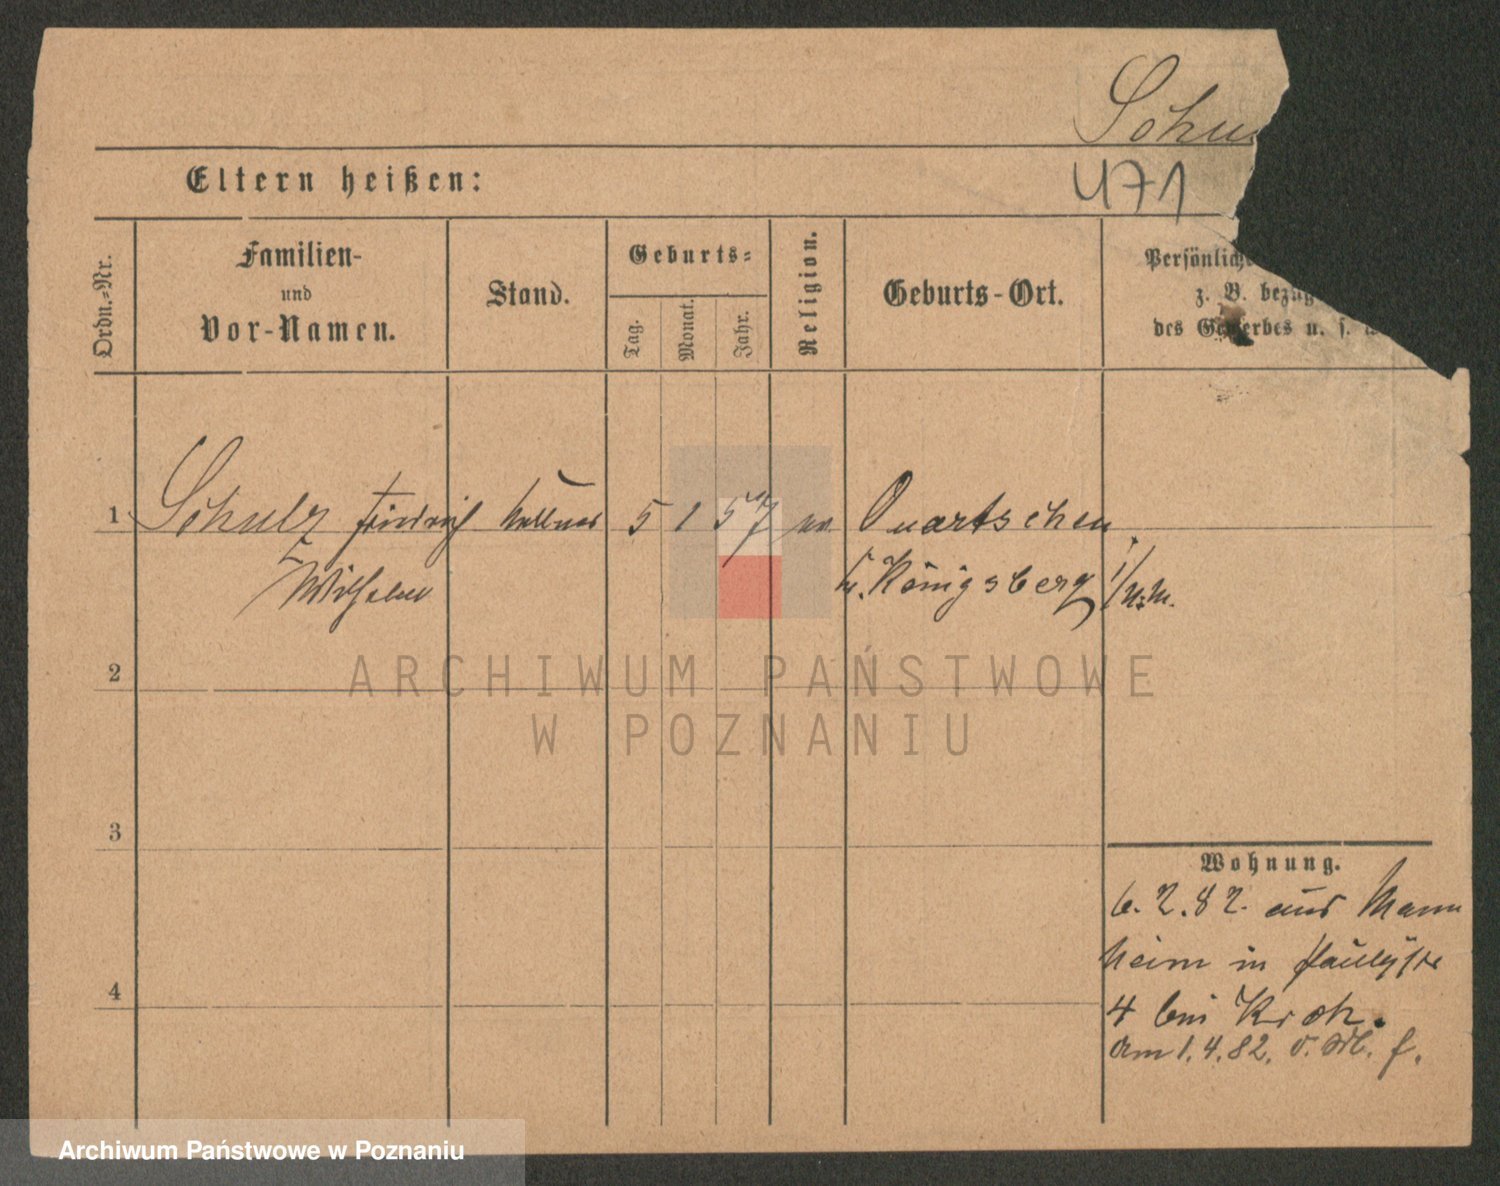 Schu
Eltern heißen:
471
Ordn.-Nr.
Familien-
und
Vor-Namen.
Stand.
Geburts-
Tag.
Monat.
Jahr.
Religion.
Geburts-Ort.
Persönliche
z. B. bezüg
des Gewerbes u. s.
1
Schulz Friedrich Kellner 5 1 57 ev. Quartschen
Wilhelm
Kr. Königsberg i/N.M.
2
3
4
Wohnung.
6. 2. 82. aus Mann
heim in
4 bei Kroh.
am 1. 4. 82. v.
ARCHIWUM PAŃSTWOWE
W POZNANIU
Archiwum Państwowe w Poznaniu